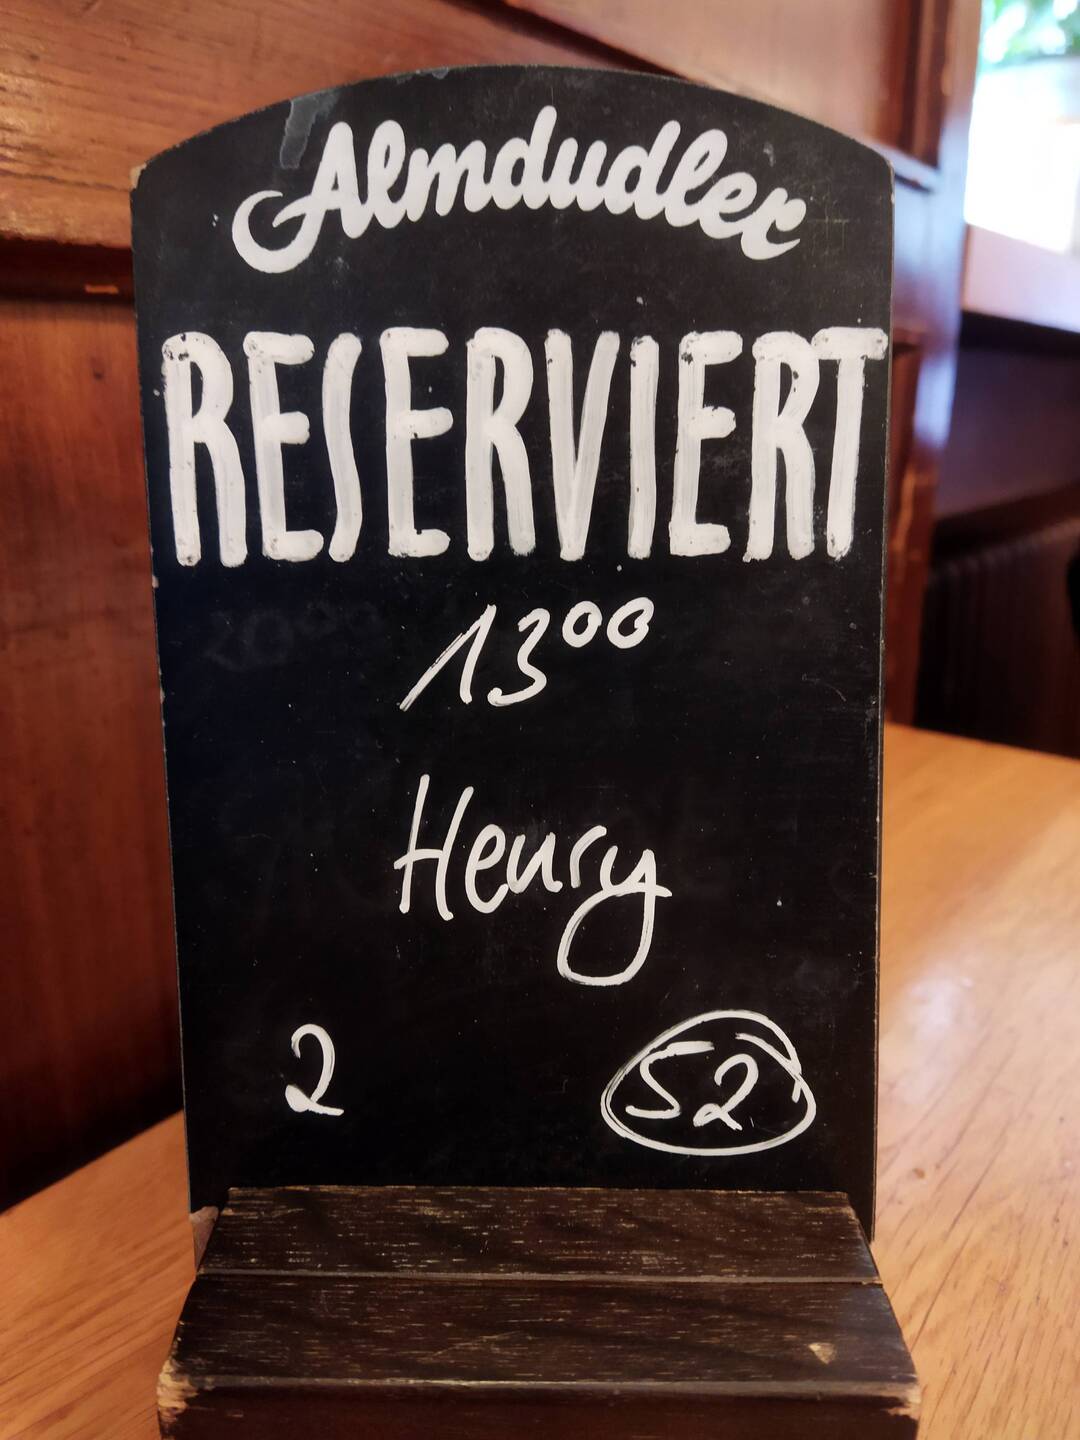 Almdudler
RESERVIERT
13⁰⁰
Henry
2 52